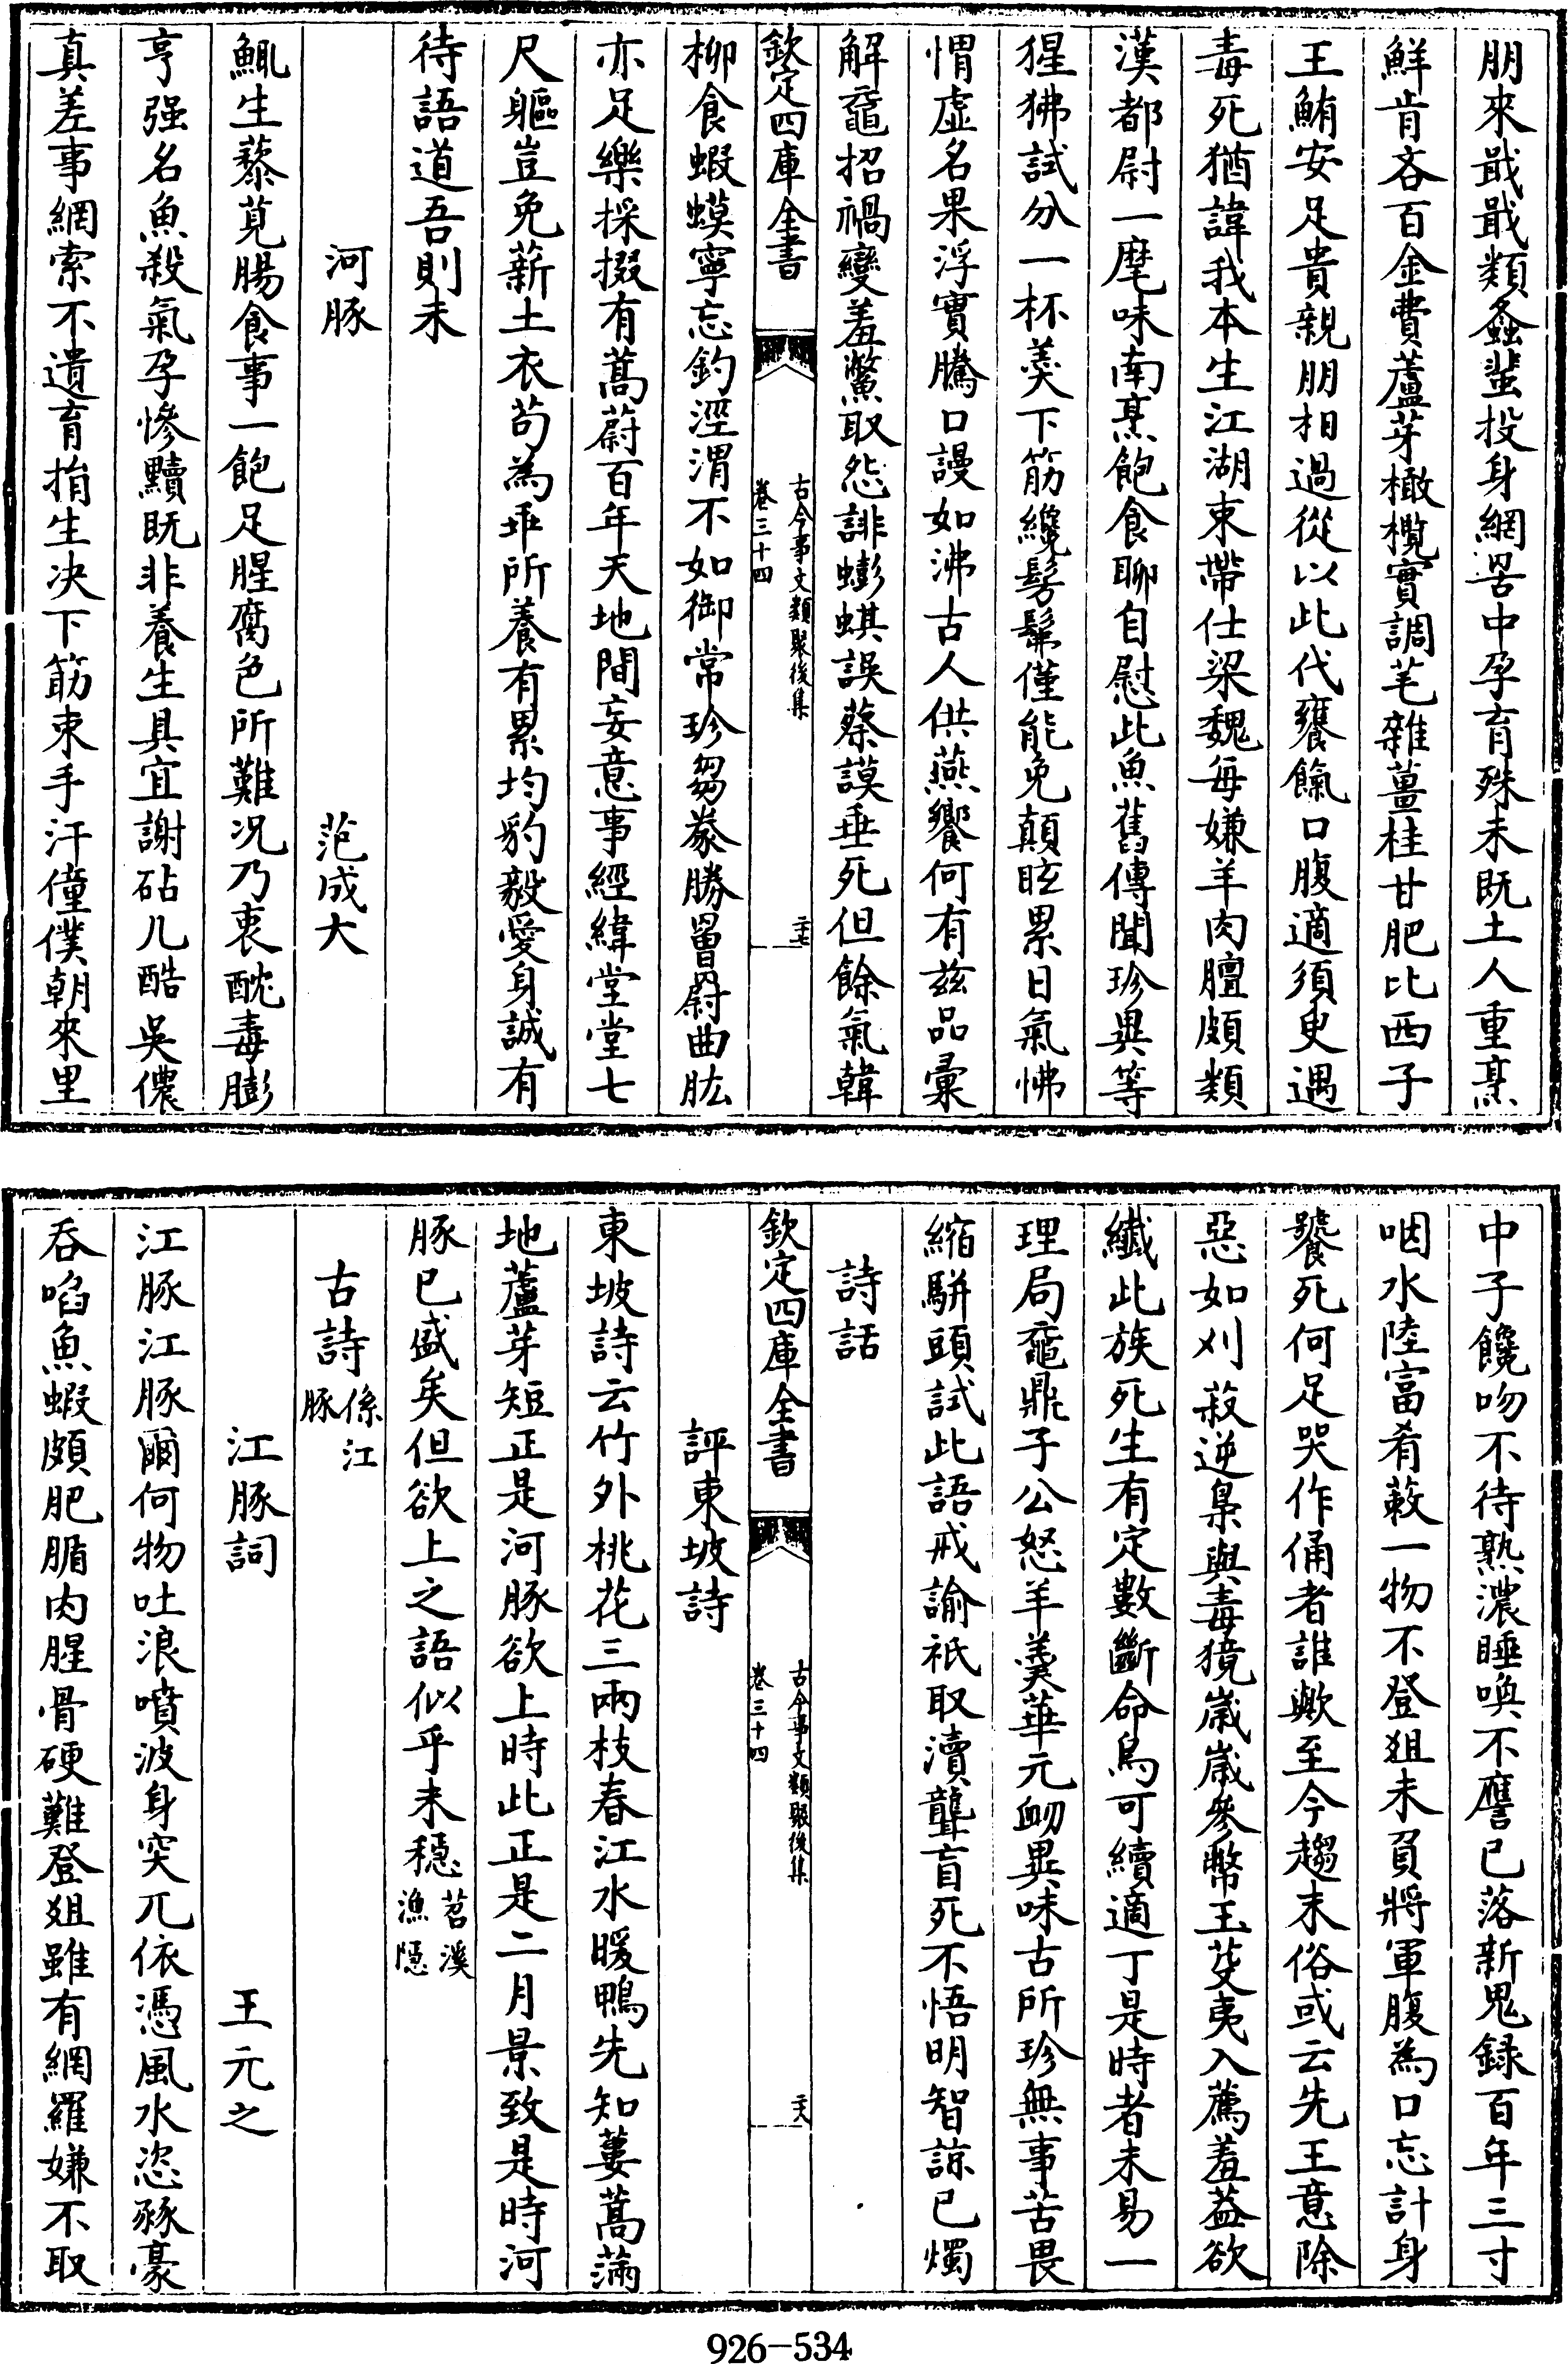 朋來戢戢類螽蜚投身網罟中孕育殊未既土人重烹
鮮肯吝百金費蘆芽橄欖實調芼雜薑桂甘肥比西子
王鮪安足貴親朋相過從以此代饔餼口腹適須臾遇
毒死猶諱我本生江湖束帶仕梁魏每嫌羊肉膻頗類
漢都尉一麾味南烹飽食聊自慰此魚舊傳聞珍異等
猩狒試分一杯羮下筋纔髣髴僅能免顛眩累日氣怫
愲虚名果浮實騰口謾如沸古人供燕饗何有兹品彚
解黿招禍變羞鱉取怨誹蟛蜞誤蔡謨垂死但餘氣韓
欽定四庫全書
古今事文類聚後集
卷三十四
二十七
柳食蝦蟆寧忘釣涇渭不如御常珍芻豢勝罾罻曲肱
亦足樂採掇有蒿蔚百年天地間妄意事經緯堂堂七
尺軀豈免薪土衣苟為乖所養有累均豹毅愛身誠有
待語道吾則未
河豚
范成大
鯫生藜莧腸食事一飽足腥腐色所難况乃衷酖毒膨
亨强名魚殺氣孕慘黷既非養生具宜謝砧几酷吳儂
真差事網索不遺育捐生决下筯束手汗僮僕朝來里
中子饞吻不待熟濃睡喚不譍已落新鬼録百年三寸
咽水陸富肴蔌一物不登俎未負將軍腹為口忘計身
饕死何足哭作俑者誰歟至今趨末俗或云先王意除
惡如刈菽逆梟與毒獍歲歲參幣玉芟夷入薦羞益欲
殱此族死生有定數斷命烏可續適丁是時者未易一
理局黿鼎子公怒羊羮華元衂異味古所珍無事苦畏
縮駢頭試此語戒諭祇取瀆聾盲死不悟明智諒已燭
詩話
欽定四庫全書
古今事文類聚後集
卷三十四
二十八
評東坡詩
東坡詩云竹外桃花三兩枝春江水暖鴨先知蔞蒿滿
地蘆芽短正是河豚欲上時此正是二月景致是時河
豚已盛矣但欲上之語似乎未穩苕溪漁隱
古詩係江豚
江豚詞
王元之
江豚江豚爾何物吐浪噴波身突兀依憑風水恣豩豪
吞啗魚蝦頗肥腯肉腥骨硬難登俎雖有網羅嫌不取
926-534